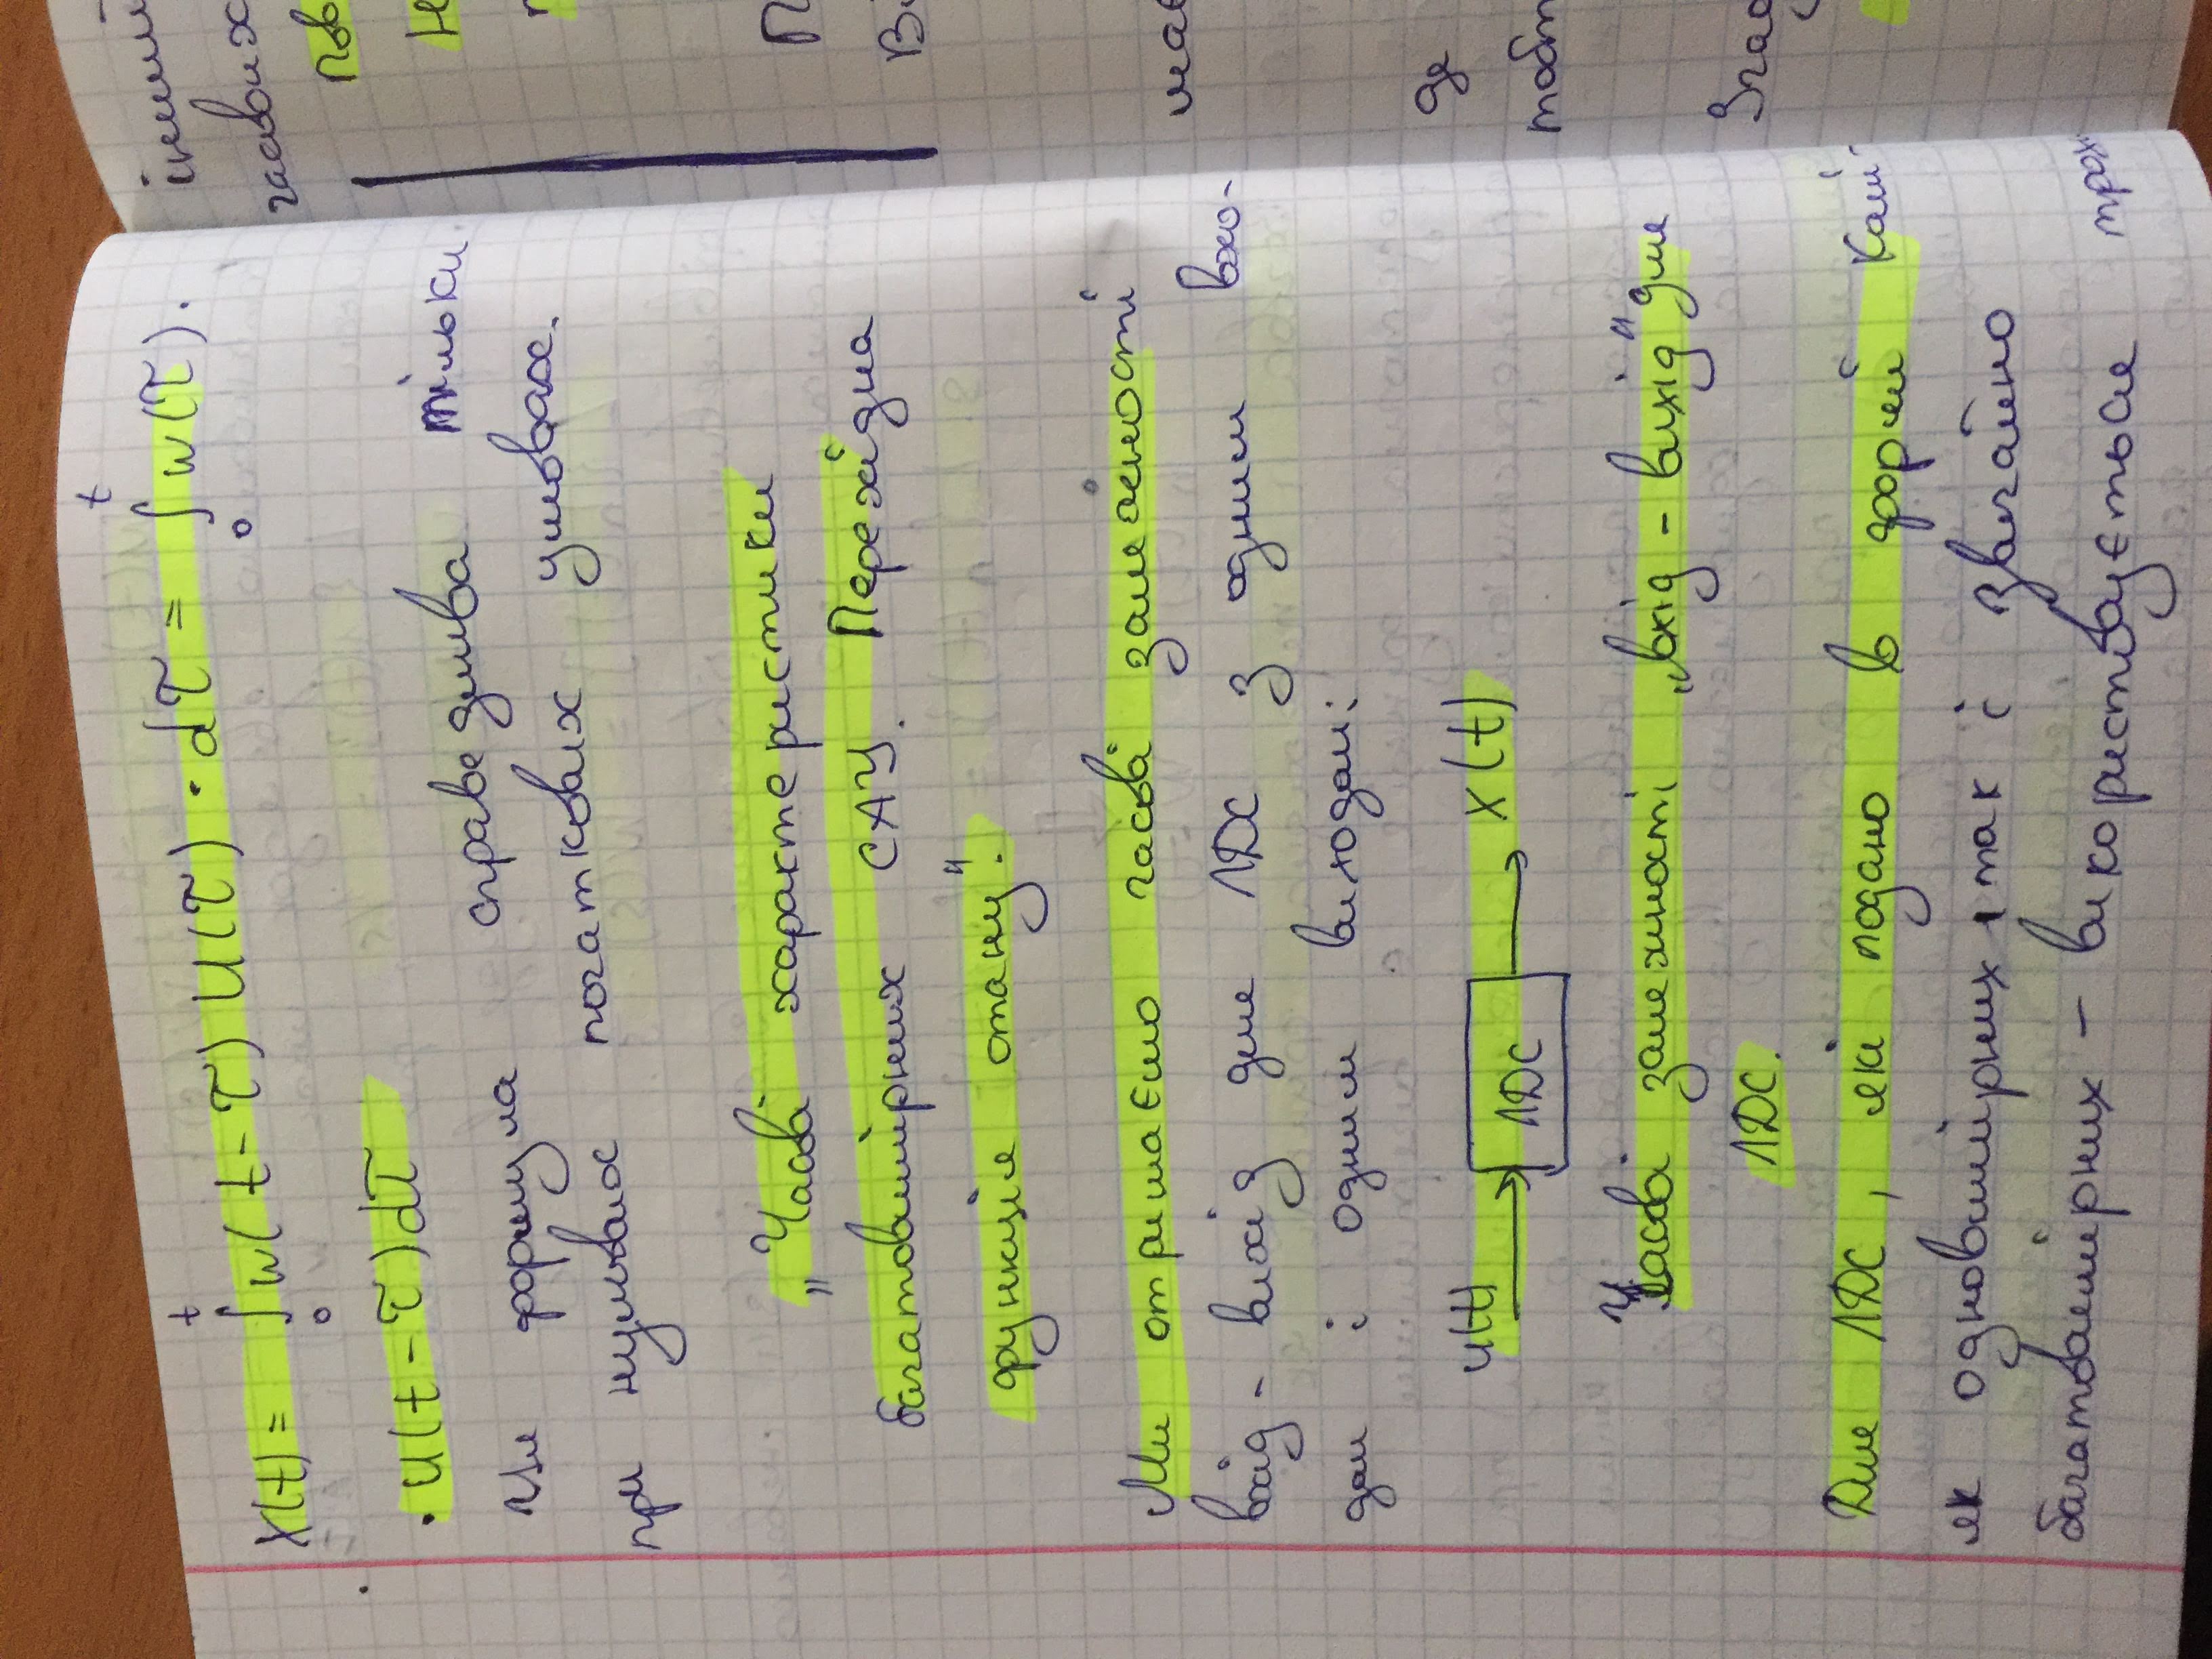 X(t) = ∫₀ᵗ w(t-τ) U(τ) · dτ = ∫₀ᵗ w(τ) ·
· u(t-τ)dτ
Ця формула справедлива тільки
при нульових початкових умовах.
„Часові характеристики
багатовимірних САУ. Перехідна
функція стану".
Ми отримаємо часові залежності
вхід - вихід для ЛДС з одним вхо-
дом і одним виходом:
u(t) ЛДС X(t)
Часові залежності „вхід - вихід" для
ЛДС.
Для ЛДС, які подано в формі Коші-
як одновимірних, так і звичайно
багатовимірних - використовується трох
часових
Пов
Н
П
де